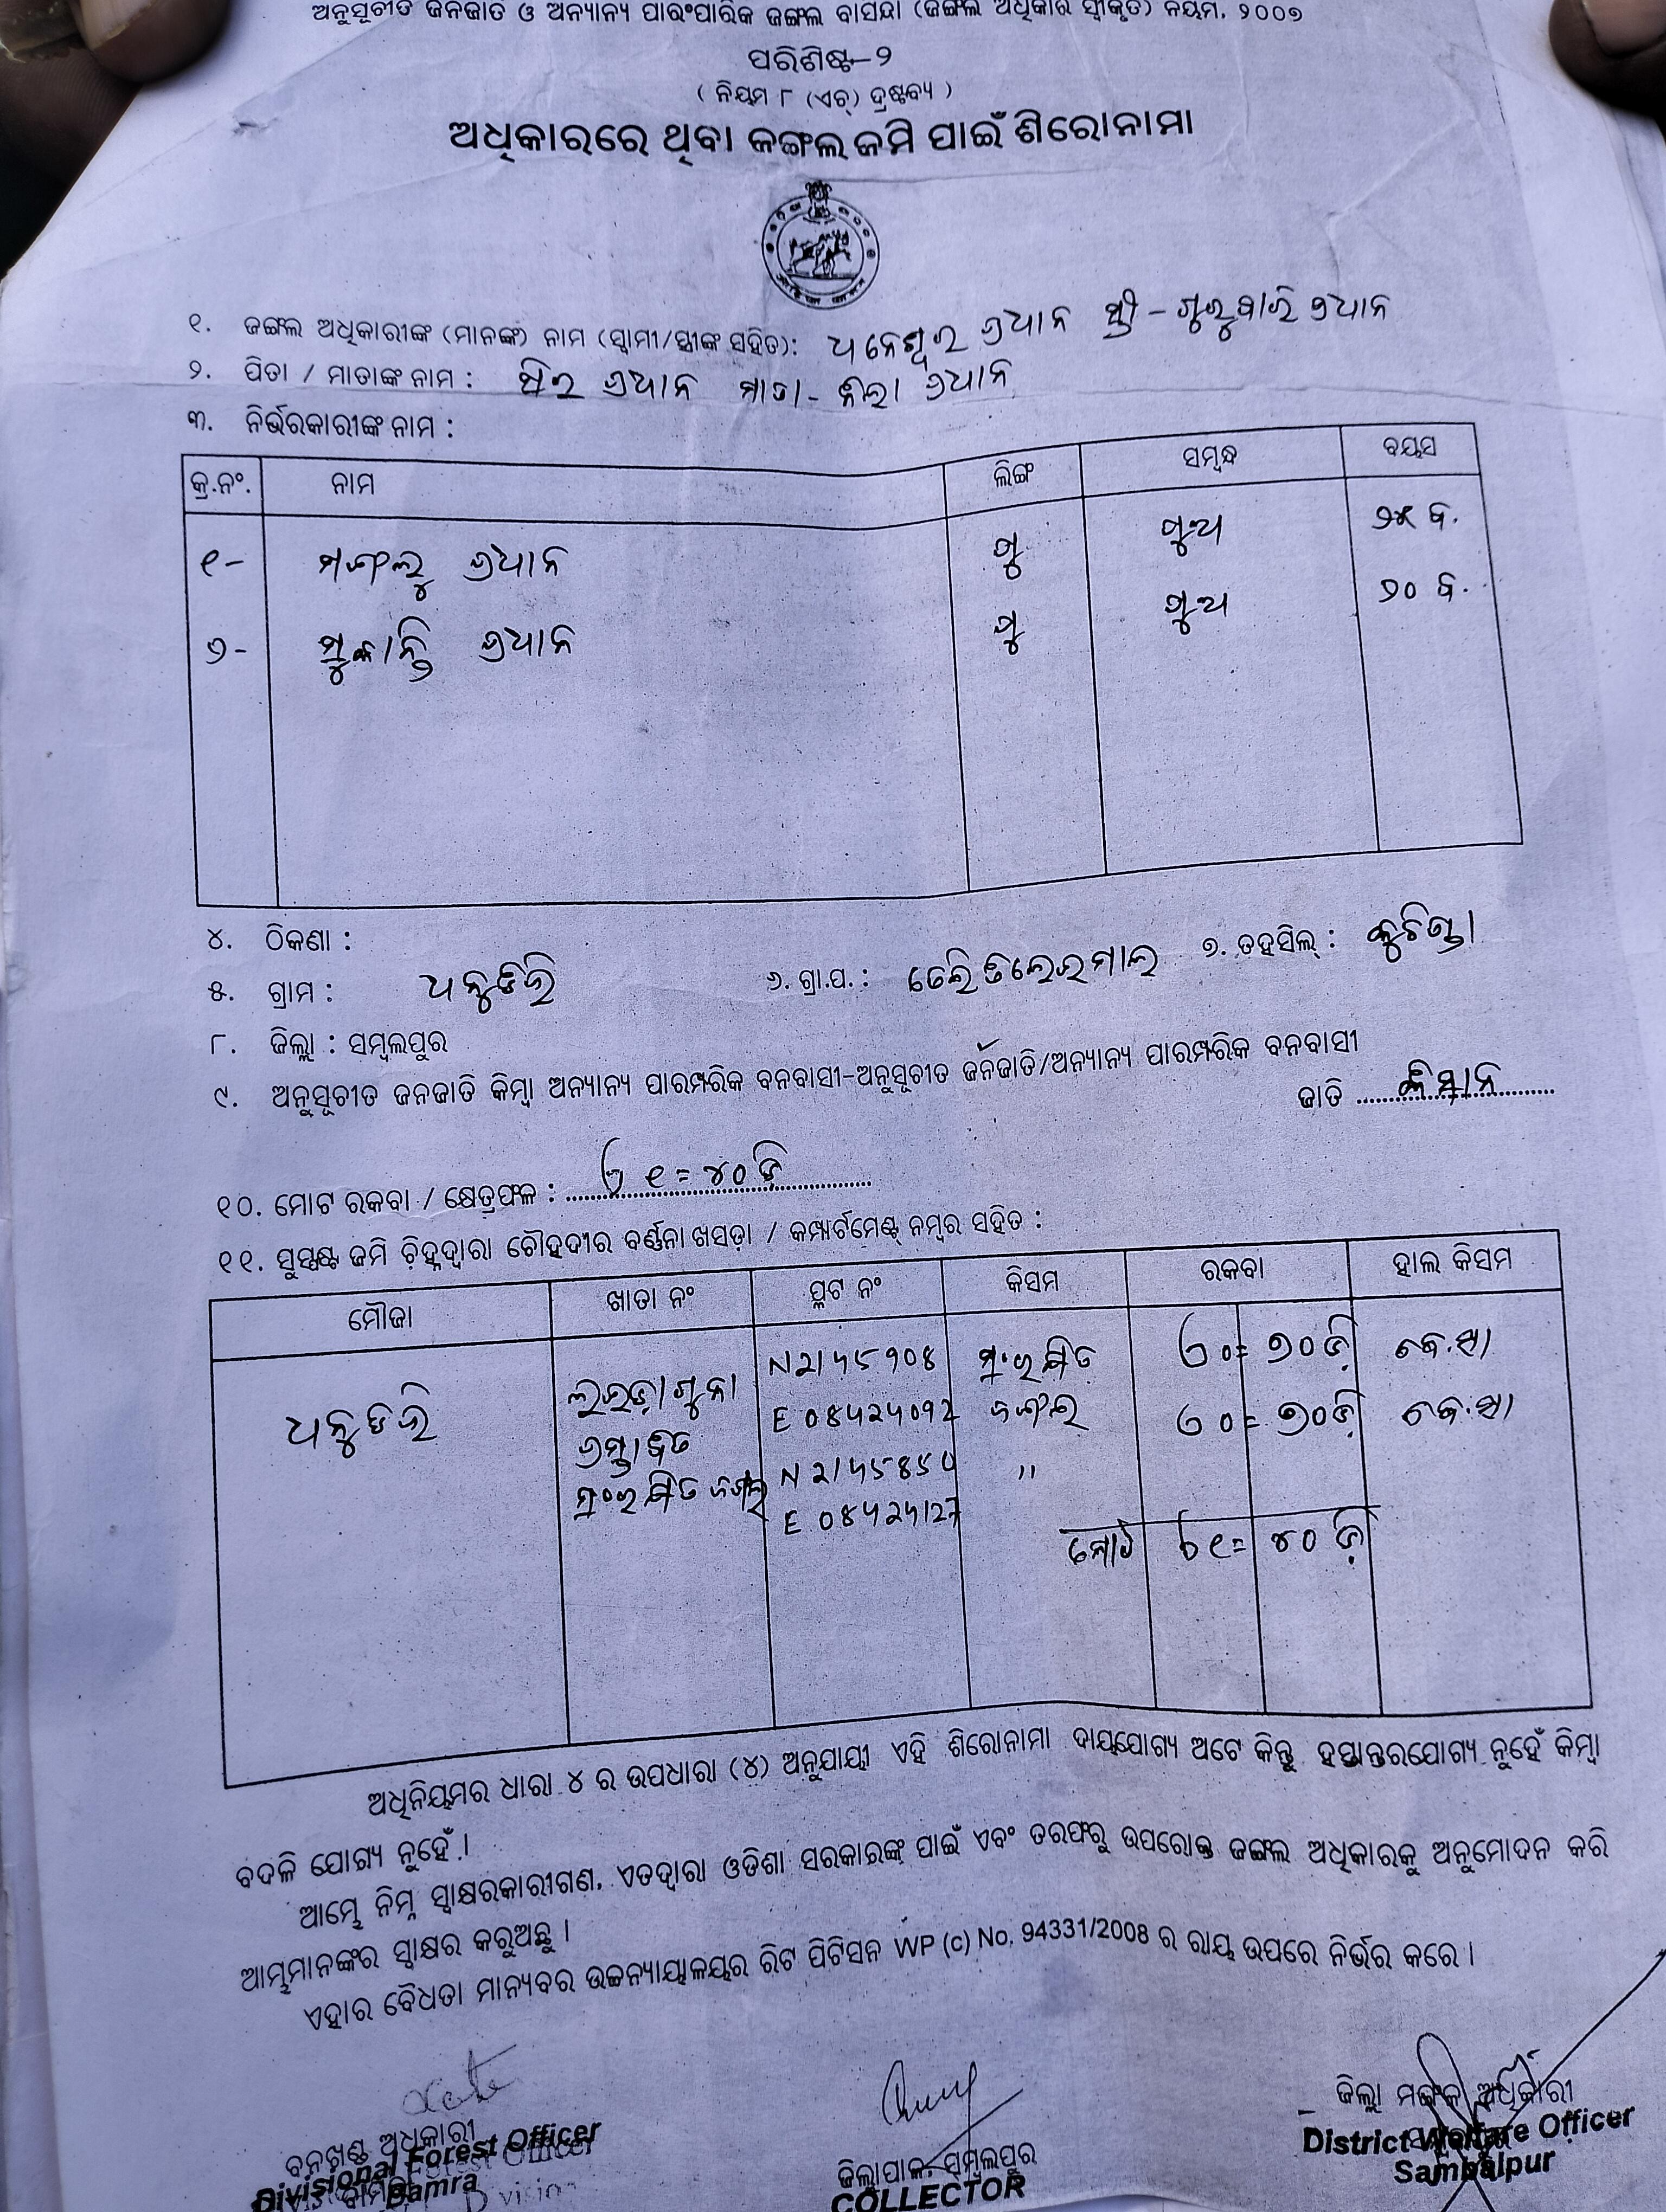 ଅନୁସୂଚୀତ ଜନଜାତି ଓ ଅନ୍ୟାନ୍ୟ ପାରଂପାରିକ ଜଙ୍ଗଲ ବାସିନ୍ଦା (ଜଙ୍ଗଲ ଅଧିକାର ସ୍ୱୀକୃତି) ନିୟମ, ୨୦୦୭
ପରିଶିଷ୍ଟ-୨
( ନିୟମ ୮ (ଏଚ୍) ଦ୍ରଷ୍ଟବ୍ୟ )
ଅଧିକାରରେ ଥିବା ଜଙ୍ଗଲ ଜମି ପାଇଁ ଶିରୋନାମା
୧. ଜଙ୍ଗଲ ଅଧିକାରୀଙ୍କ (ମାନଙ୍କ) ନାମ (ସ୍ୱାମୀ/ସ୍ତ୍ରୀଙ୍କ ସହିତ): ଧନେଶ୍ୱର ପ୍ରଧାନ ସ୍ତ୍ରୀ - ଗୁରୁବାରି ପ୍ରଧାନ
୨. ପିତା / ମାତାଙ୍କ ନାମ : ପ୍ରଧାନ ମାତା - ପ୍ରଧାନ
୩. ନିର୍ଭରକାରୀଙ୍କ ନାମ :
କ୍ର.ନଂ. ନାମ ଲିଙ୍ଗ ସମ୍ବନ୍ଧ ବୟସ
୧- ମଙ୍ଗଲୁ ପ୍ରଧାନ ପୁ ପୁଅ ୨୫ ବ.
୨- ସୁକାନ୍ତି ପ୍ରଧାନ ପୁ ପୁଅ ୨୦ ବ.
୪. ଠିକଣା :
୫. ଗ୍ରାମ : ୬. ଗ୍ରା.ପ. : ୭. ତହସିଲ୍ : କୁଚିଣ୍ଡା
୮. ଜିଲ୍ଲା : ସମ୍ବଲପୁର
୯. ଅନୁସୂଚୀତ ଜନଜାତି କିମ୍ବା ଅନ୍ୟାନ୍ୟ ପାରମ୍ପରିକ ବନବାସୀ-ଅନୁସୂଚୀତ ଜନଜାତି/ଅନ୍ୟାନ୍ୟ ପାରମ୍ପରିକ ବନବାସୀ
ଜାତି .......... କିସାନ ..........
୧୦. ମୋଟ ରକବା / କ୍ଷେତ୍ରଫଳ : ଏ ୧ = ୪୦ ଡ଼ି
୧୧. ସୁସ୍ପଷ୍ଟ ଜମି ଚିହ୍ନଦ୍ୱାରା ଚୌହଦୀର ବର୍ଣ୍ଣନା ଖସଡ଼ା / କମ୍ପାର୍ଟମେଣ୍ଟ୍ ନମ୍ବର ସହିତ :
ମୌଜା ଖାତା ନଂ ପ୍ଲଟ ନଂ କିସମ ରକବା ହାଲ କିସମ
ସଂରକ୍ଷିତ ଏ ୦ = ୭୦ ଡ଼ି
ଜଙ୍ଗଲ ଏ ୦ = ୭୦ ଡ଼ି
ପ୍ରସ୍ତାବିତ
ସଂରକ୍ଷିତ ଜଙ୍ଗଲ "
ମୋଟ ଏ ୧ = ୪୦ ଡ଼ି
ଅଧିନିୟମର ଧାରା ୪ ର ଉପଧାରା (୪) ଅନୁଯାୟୀ ଏହି ଶିରୋନାମା ଦାୟଯୋଗ୍ୟ ଅଟେ କିନ୍ତୁ ହସ୍ତାନ୍ତରଯୋଗ୍ୟ ନୁହେଁ କିମ୍ବା
ବଦଳି ଯୋଗ୍ୟ ନୁହେଁ ।
ଆମ୍ଭେ ନିମ୍ନ ସ୍ୱାକ୍ଷରକାରୀଗଣ, ଏତଦ୍ୱାରା ଓଡିଶା ସରକାରଙ୍କ ପାଇଁ ଏବଂ ତରଫରୁ ଉପରୋକ୍ତ ଜଙ୍ଗଲ ଅଧିକାରକୁ ଅନୁମୋଦନ କରି
ଆମ୍ଭମାନଙ୍କର ସ୍ୱାକ୍ଷର କରୁଅଛୁ ।
ଏହାର ବୈଧତା ମାନ୍ୟବର ଉଚ୍ଚନ୍ୟାୟାଳୟର ରିଟ ପିଟିସନ WP (c) No. 94331/2008 ର ରାୟ ଉପରେ ନିର୍ଭର କରେ ।
ବନଖଣ୍ଡ ଅଧିକାରୀ
Divisional Forest Officer
Bamra
ଜିଲ୍ଲାପାଳ, ସମ୍ବଲପୁର
COLLECTOR
ଜିଲ୍ଲା ମଙ୍ଗଳ ଅଧିକାରୀ
District Welfare Officer
Sambalpur